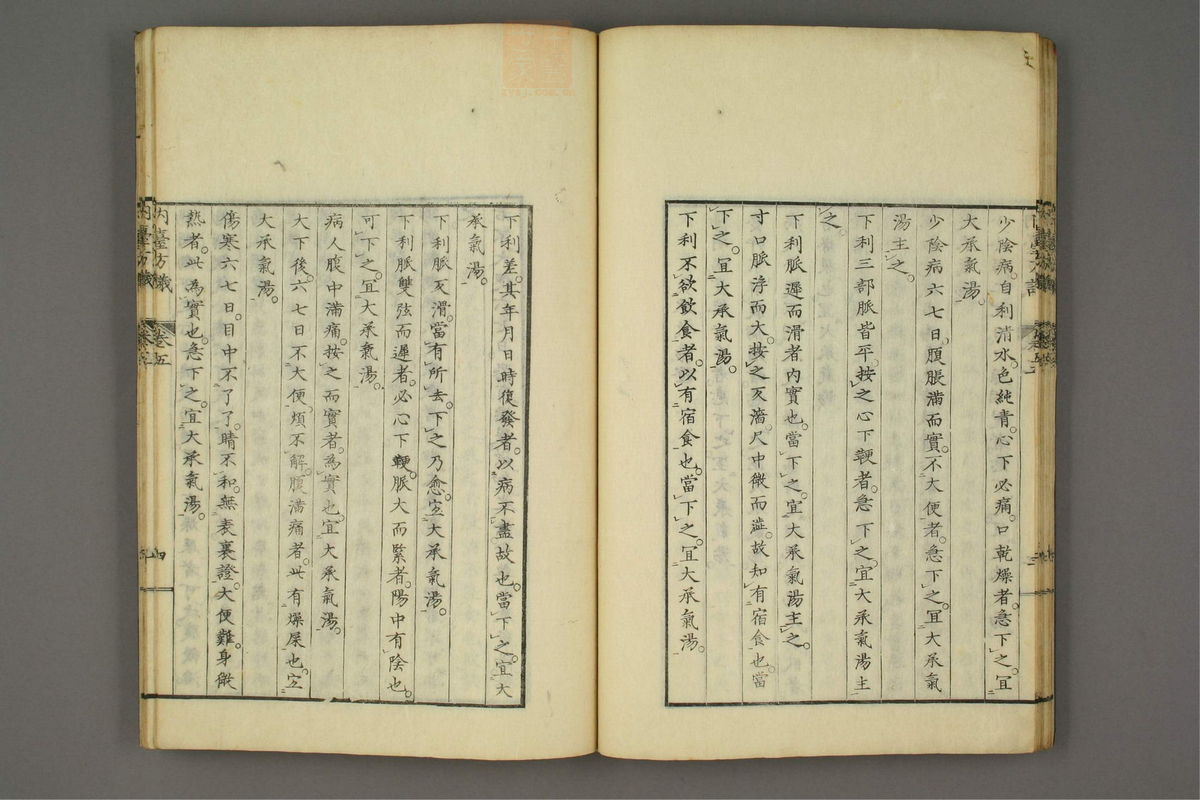 少陰病。自利清水。色純青。心下必痛。口乾燥者。急下之。宜
大承氣湯。
少陰病六七日。腹脹滿而實。不大便者。急下之。宜大承氣
湯主之。
下利三部脈皆平。按之心下鞕者。急下之。宜大承氣湯主
之。
下利脈遲而滑者。內實也。當下之。宜大承氣湯主之。
寸口脈浮而大。按之反濇。尺中微而澁。故知有宿食也。當
下之。宜大承氣湯。
下利不欲飲食者。以有宿食也。當下之。宜大承氣湯。
下利差。其年月日時復發者。以病不盡故也。當下之。宜大
承氣湯。
下利脈反滑。當有所去。下之乃愈。宜大承氣湯。
下利脈雙弦而遲者。必心下鞕。脈大而緊者。陽中有陰也。
可下之。宜大承氣湯。
病人腹中滿痛。按之而實者。為實也。宜大承氣湯。
大下後。六七日不大便。煩不解。腹滿痛者。此有燥屎也。宜
大承氣湯。
傷寒六七日。目中不了了。睛不和。無表裏證。大便難。身微
熱者。此為實也。急下之。宜大承氣湯。
內臺方議
卷五
四